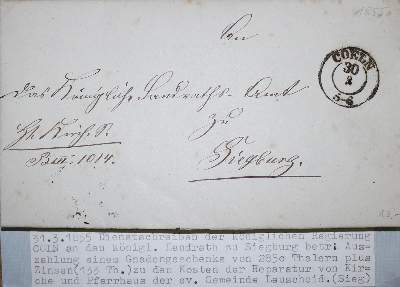 An
COELN
30
3
5-6
Das Königliche Landraths-Amt
zu
Siegburg.
31.3.185 Dienstschreiben der Königlichen Regierung
COELN an das Königl. Landrath zu Siegburg betr: Aus-
zahlung eines Gnadengeschenks von 2850 Thalern plus
Zinsen(133 Th.)zu den Kosten der Reparatur von Kir-
che und Pfarrhaus der ev. Gemeinde Leuscheid.(Sieg)